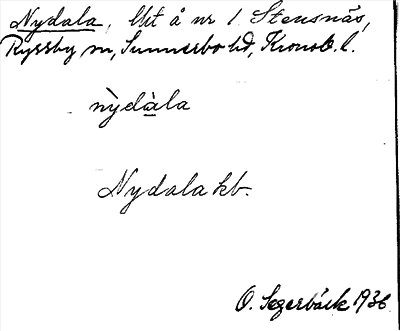 Nydala, lht å nr 1 Stensnäs,
Ryssby sn, Sunnerbo hd, Kronob. l.
nỳdàla
Nydala kb.
O. Segerbäck 1936